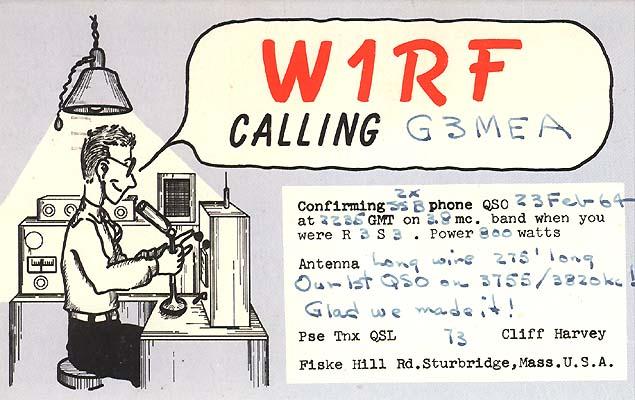 W1RF
CALLING G3MEA
Confirming 2X SSB phone QSO 23 Feb 64
at 2235 GMT on 3.8 mc. band when you
were R 3 S 3 . Power 800 watts
Antenna Long wire 275' long
Our 1st QSO on 3755/3820kc!
Glad we made it!
Pse Tnx QSL 73 Cliff Harvey
Fiske Hill Rd.Sturbridge,Mass.U.S.A.